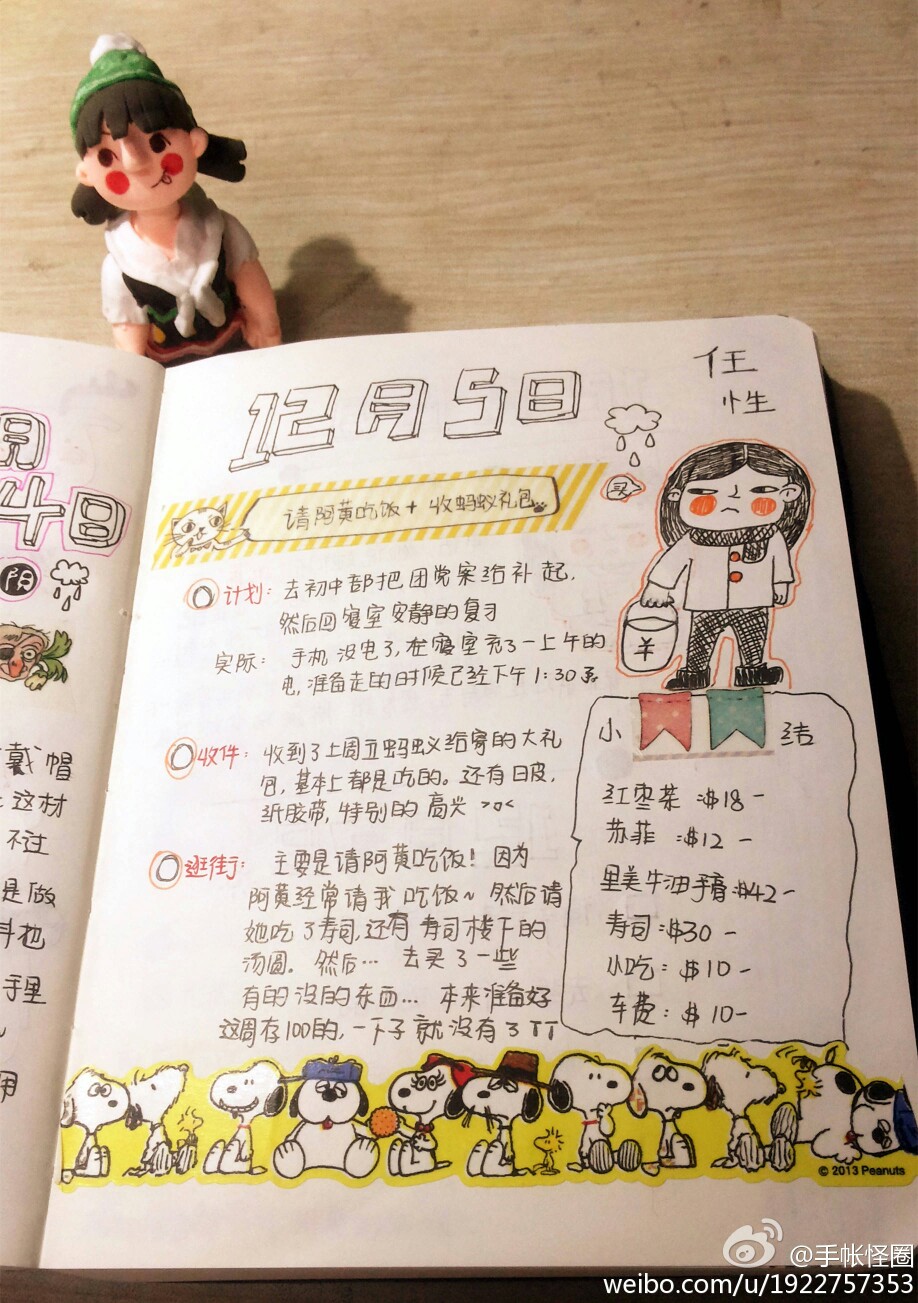 月
4日
阴
戴帽
这材
不过
是做
斗把
手里
12月5日
任
性
买
请阿黄吃饭+收蚂蚁礼包
计划: 去初中部把团党案给补起,
然后回寝室安静的复习
实际: 手机没电了,在寝室充了一上午的
电,准备走的时候已经下午1:30了
收件: 收到了上周五蚂蚁给寄的大礼
包,基本上都是吃的。还有日皮,
纸胶带,特别的高兴 >o<
逛街: 主要是请阿黄吃饭!因为
阿黄经常请我吃饭~然后请
她吃了寿司,还有寿司楼下的
汤圆。然后…去买了一些
有的没的东西…本来准备好
这周存100的,一下子就没有了TT
¥
小结
红枣茶:$18-
苏菲:$12-
里美牛油手膏$42-
寿司:$30-
小吃:$10-
车费:$10-
© 2013 Peanuts
@手帐怪圈
weibo.com/u/1922757353